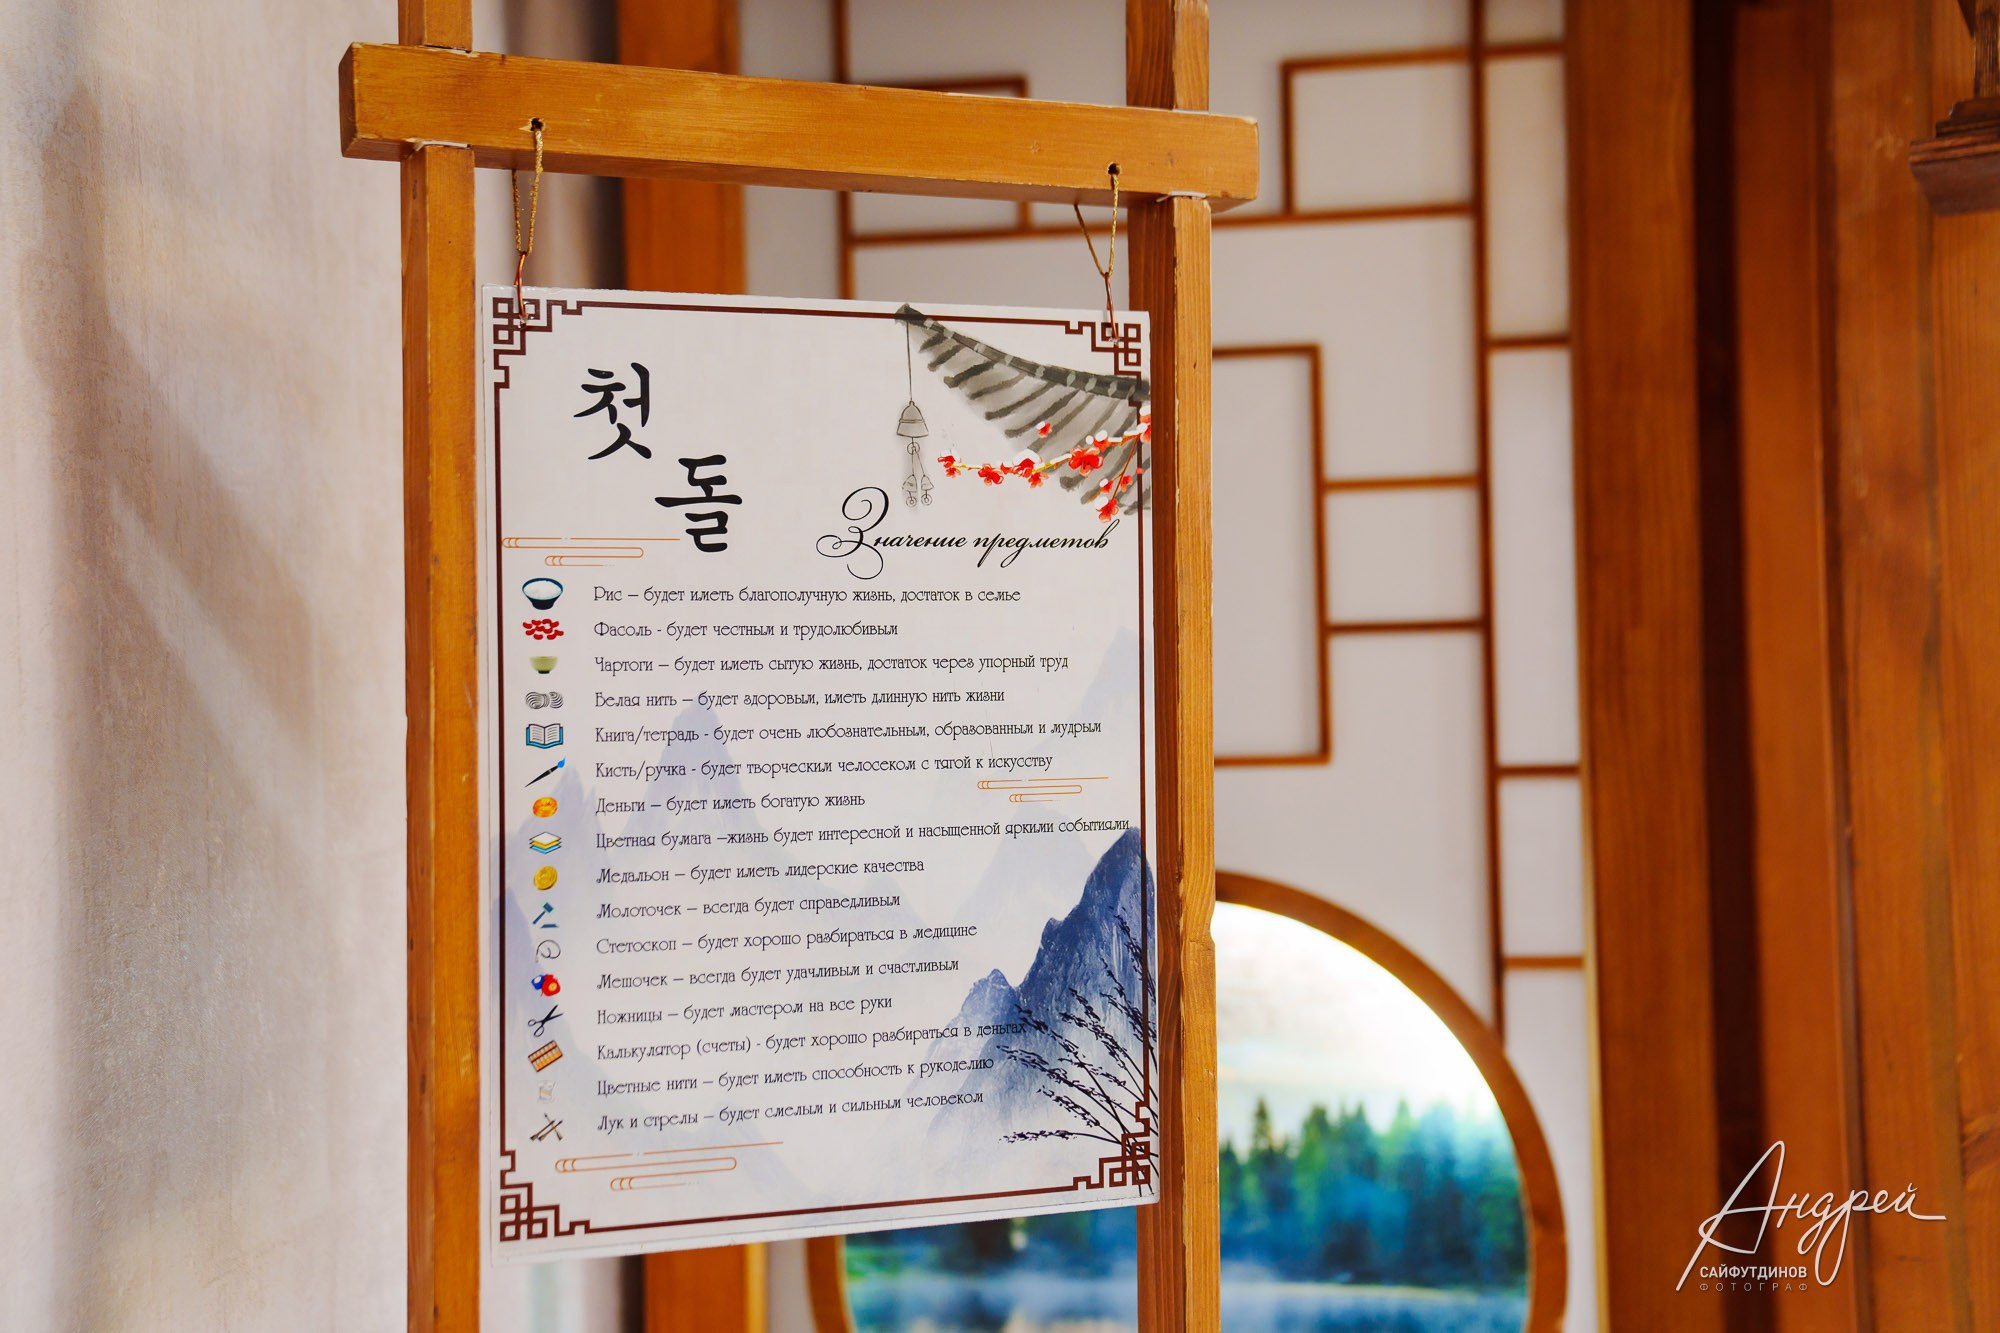 첫
돌
Значение предметов
Рис – будет иметь благополучную жизнь, достаток в семье
Фасоль - будет честным и трудолюбивым
Чартоги – будет иметь сытую жизнь, достаток через упорный труд
Белая нить – будет здоровым, иметь длинную нить жизни
Книга/тетрадь - будет очень любознательным, образованным и мудрым
Кисть/ручка - будет творческим челосеком с тягой к искусству
Деньги – будет иметь богатую жизнь
Цветная бумага –жизнь будет интересной и насыщенной яркими событиями
Медальон – будет иметь лидерские качества
Молоточек – всегда будет справедливым
Стетоскоп – будет хорошо разбираться в медицине
Мешочек – всегда будет удачливым и счастливым
Ножницы – будет мастером на все руки
Калькулятор (счеты) - будет хорошо разбираться в деньгах
Цветные нити – будет иметь способность к рукоделию
Лук и стрелы – будет смелым и сильным человеком
Андрей
САЙФУТДИНОВ
ФОТОГРАФ